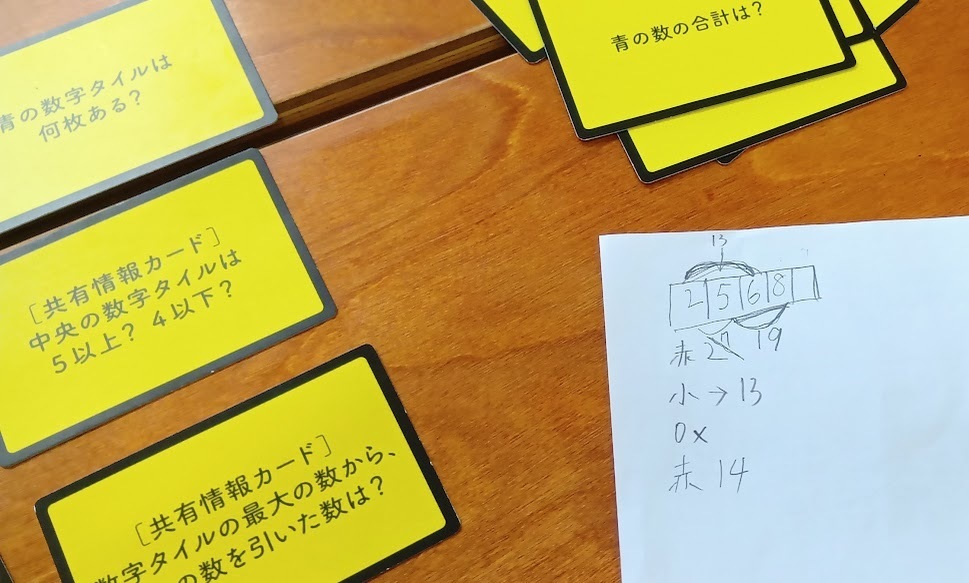 青の数字タイルは
何枚ある？
青の数の合計は？
［共有情報カード］
中央の数字タイルは
５以上？ ４以下？
［共有情報カード］
数字タイルの最大の数から、
の数を引いた数は？
13
2 5 6 8
赤 27 19
小→13
0×
赤 14